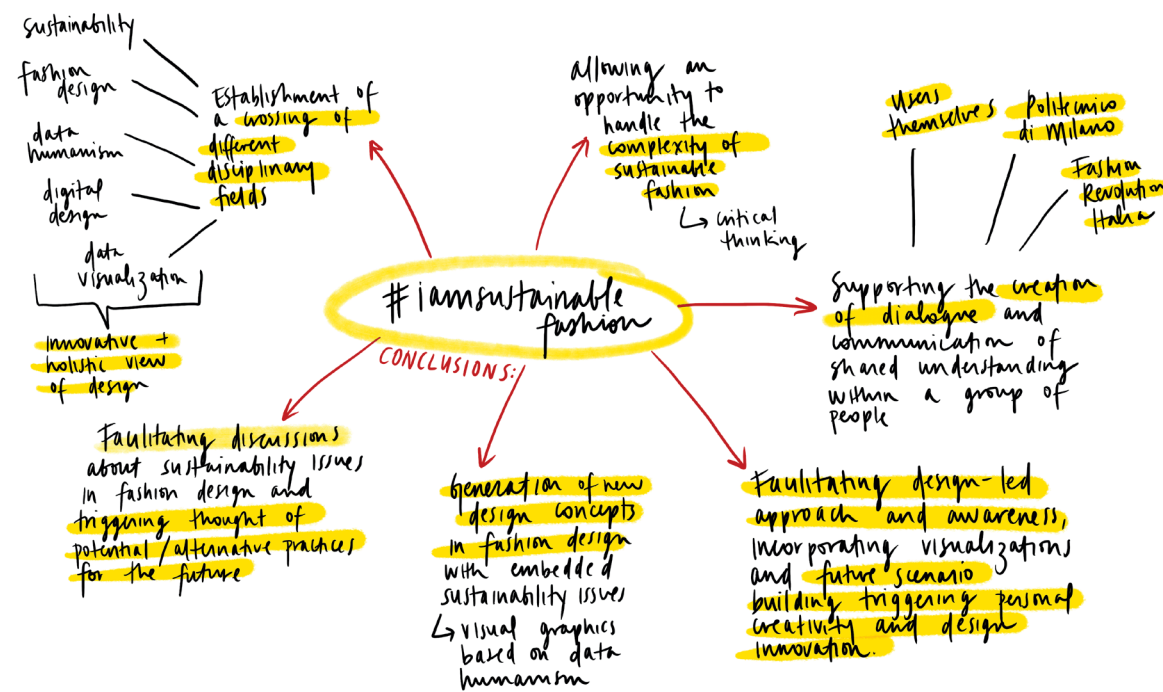 sustainability
fashion
design
data
humanism
digital
design
data
visualization
innovative +
holistic view
of design
Establishment of
a crossing of
different
disciplinary
fields
allowing an
opportunity to
handle the
complexity of
sustainable
fashion
critical
thinking
users
themselves
Politecnico
di Milano
Fashion
Revolution
Italia
Supporting the creation
of dialogue and
communication of
shared understanding
within a group of
people
#iamsustainable
fashion
CONCLUSIONS:
Facilitating discussions
about sustainability issues
in fashion design and
triggering thought of
potential/alternative practices
for the future
Generation of new
design concepts
in fashion design
with embedded
sustainability issues
visual graphics
based on data
humanism
Facilitating design-led
approach and awareness,
incorporating visualizations
and future scenario
building triggering personal
creativity and design
innovation.